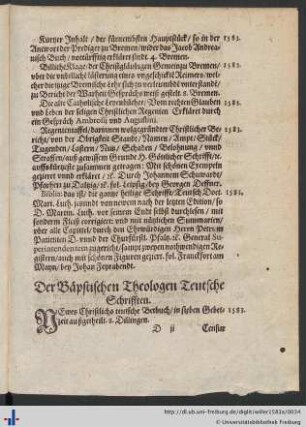 Kurtzer Inhalt / der fürnemesten Hauptstück / so in der 1583.
Antwort der Prediger zu Bremen / wider das Jacob Andreæ-
nisch Buch / notturfftig erklärt sindt. 4. Bremen.
Billiche Klage der Christgläubigen Gemeinge Bremen / 1583.
vber die vnbillicht lästerung eines vngeschickte Reimers / wel-
cher die jnige Bremische lehr sich zu verleumbde vnterstandt /
zu Bericht der Warheit Gesprächs weiß gestelt. 8. Bremen.
Die alte Catholische Lerenbücher / Vom rechten Glauben 1583.
vnd Leben der seligen Christlichen Regenten. Erkläret durch
ein Gespräch Ambrosij vnd Augustini.
Regententaffel / darinnen wolgegründter Christlicher Be- 1583.
richt / von der Obrigkeit Stande / Namen / Ampt / Stück /
Tugenden / Lastern / Nutz / Schaden / Belohnung / vnnd
Straffen / auß gewissem Grunde H. Göttlicher Schrifft / zc.
auffs kürtzste zusammen getragen: Mit schönen Exempeln
geziert vnnd erklärt / zc. Durch Johannem Schuwardt /
Pfarherr zu Dalwitz / zc. fol. Leiptzig / bey Georgen Deffner.
Biblia: das ist / die gantze heilige Schrifft / Teutsch Doct. 1583.
Mart. Luth. jeßundt von newem nach der letzten Edition / so
D. Martin. Luth. vor seinem Ende selbst durchlesen / mit
sonderm Fleiß corrigiert: vnd mit nützlichen Summarien /
vber alle Capittel / durch den Ehrwirdigen Herrn Petrum
Patientem D. vnnd der Churfürstl. Pfaltz. zc. General Su-
perintendenten zugericht / sampt zweyen nothwendigen Re-
gistern / auch mit schönen Figuren geziert. fol. Franckfort am
Mayn / bey Johan Feyrabendt.
Der Bäpstischen Theologen Teutsche
Schrifften.
NEwes Christlichs teutsche Betbuch / in sieben Gebet- 1583.
zeit außgetheilt. 8. Dillingen.
D ij Censur
http://dl.ub.uni-freiburg.de/diglit/willer1583a/0034
© Universitätsbibliothek Freiburg